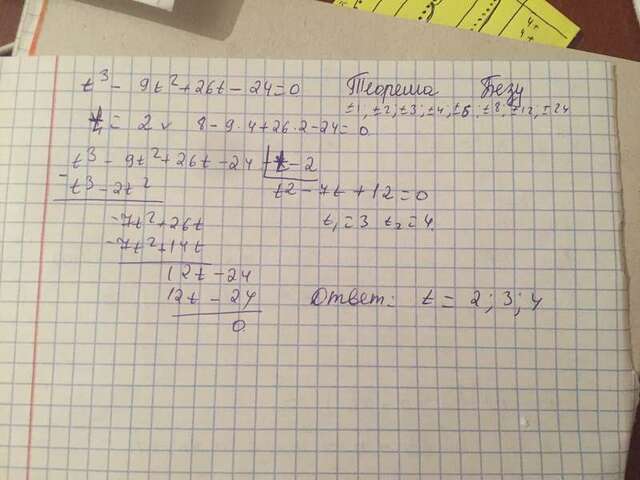 t³ - 9t² + 26t - 24 = 0 Теорема Безу
±1, ±2; ±3; ±4, ±6; ±8, ±12, ±24
t₁ = 2 ✓ 8 - 9·4 + 26·2 - 24 = 0
t³ - 9t² + 26t - 24 | t - 2
- t³ - 2t² t² - 7t + 12 = 0
-7t² + 26t t₁ = 3 t₂ = 4.
-7t² + 14t
12t - 24
12t - 24 Ответ: t = 2; 3; 4
0